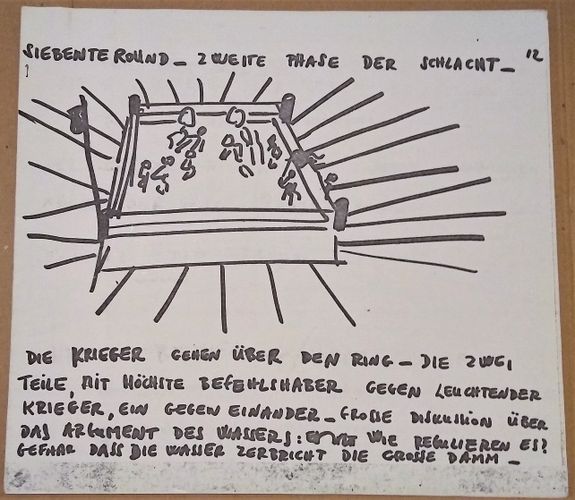 SIEBENTE ROUND_ ZWEITE PHASE DER SCHLACHT_ 12
DIE KRIEGER GEHEN ÜBER DEN RING_ DIE ZWEI
TEILE, MIT HÖCHSTE BEFEHLSHABER GEGEN LEUCHTENDER
KRIEGER, EIN GEGEN EINANDER_ GROßE DISKUSION ÜBER
DAS ARGUMENT DES WASSERS: WIE REGULIEREN ES?
GEFHAR DASS DIE WASSER ZERBRICHT DIE GROSSE DAMM_